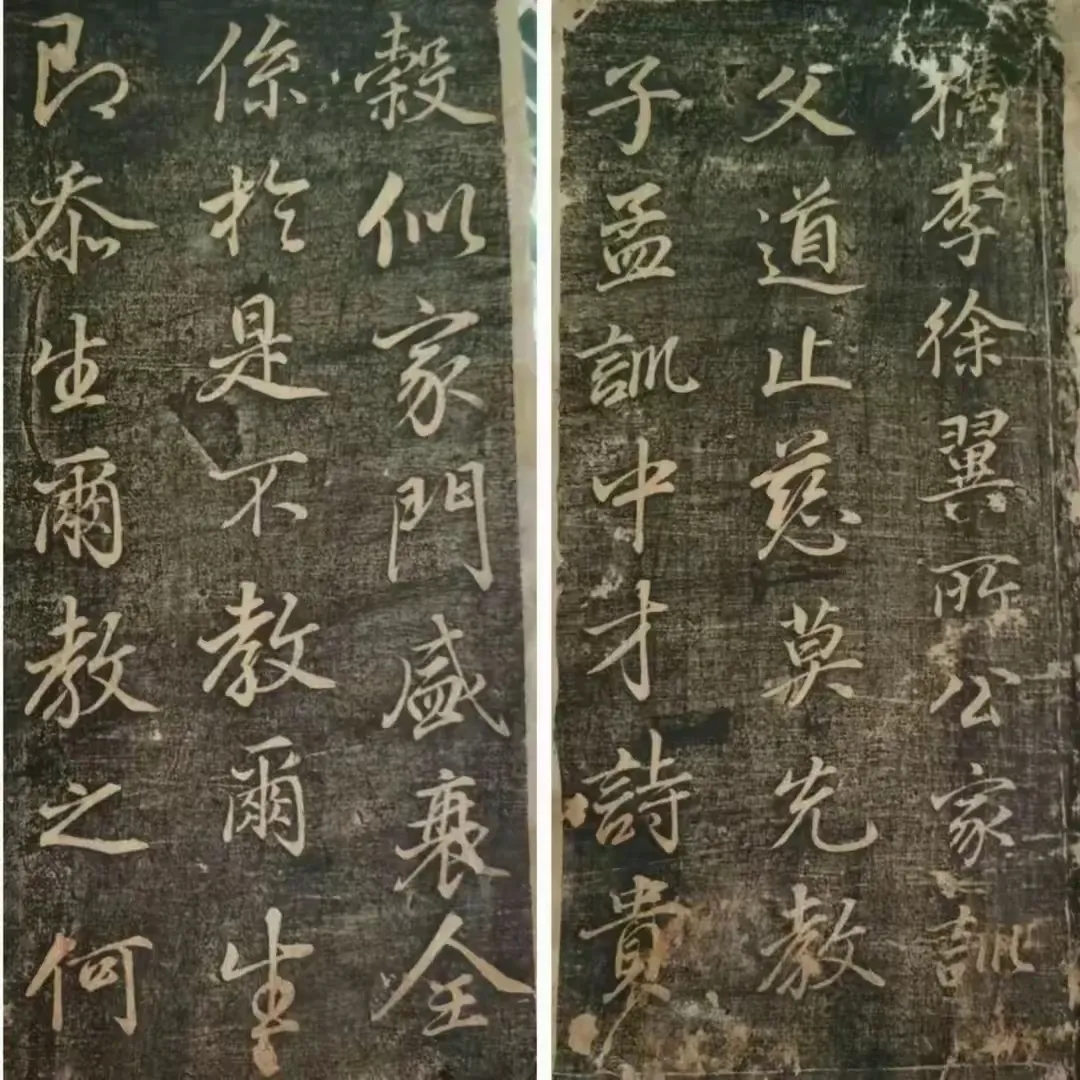 檇李徐翼所公家訓
父道止慈莫先教
子孟訓中才詩貴
穀似家門盛衰全
係於是不教爾生
即忝生爾教之何